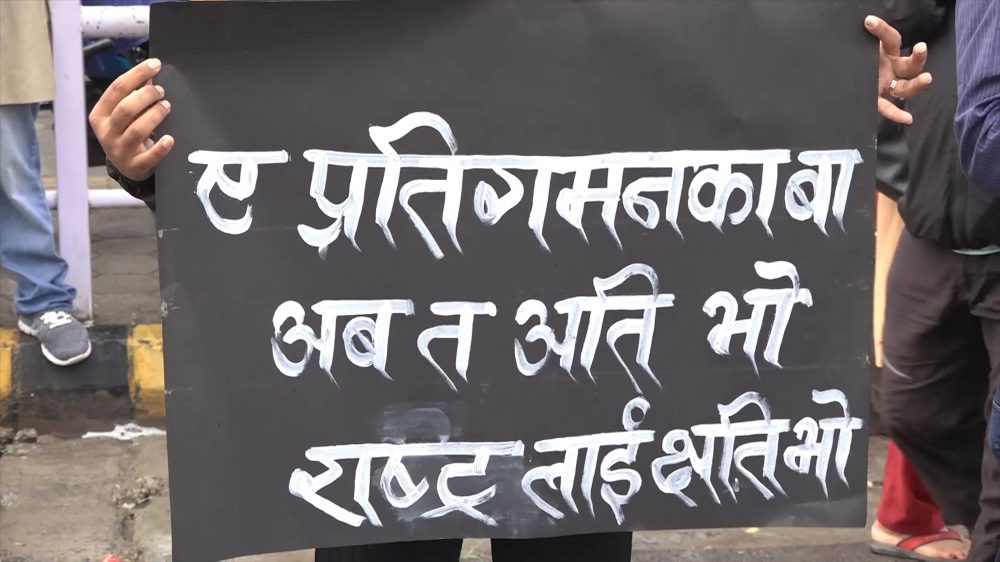 ए प्रतिगमनका बा
अब त अति भो
राष्ट्र लाइं क्षति भो